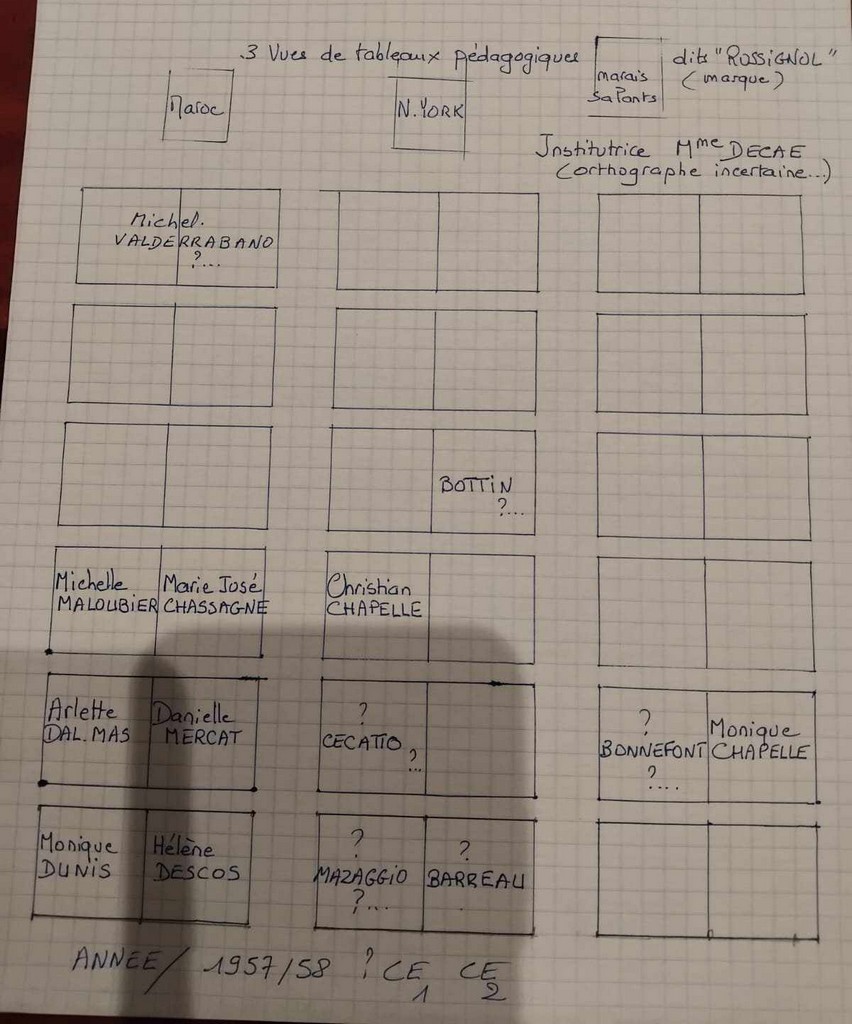 .3 Vues de tableaux pédagogiques dits "ROSSIGNOL"
(marque)
Maroc
N. YORK
marais
Sa Ponts
Institutrice Mme DECAE
(orthographe incertaine...)
Michel.
VALDERRABANO
?...
BOTTIN
?...
Michelle
MALOUBIER
Marie José
CHASSAGNE
Christian
CHAPELLE
Arlette
DAL.MAS
Danielle
MERCAT
?
CECATIO
?
...
?
BONNEFONT
?....
Monique
CHAPELLE
Monique
DUNIS
Hélène
DESCOS
?
MAZAGGIO
?...
?
BARREAU
ANNEE/ 1957/58 ? CE1 CE2